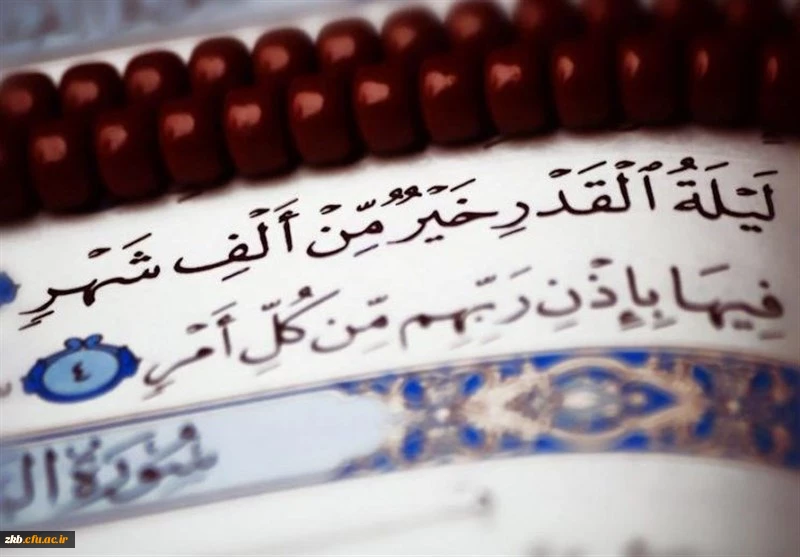 لَيۡلَةُ ٱلۡقَدۡرِ خَيۡرٞ مِّنۡ أَلۡفِ شَهۡرٖ
فِيهَا بِإِذۡنِ رَبِّهِم مِّن كُلِّ أَمۡرٖ ٤
سُورَةُ
zkb.cfu.ac.ir